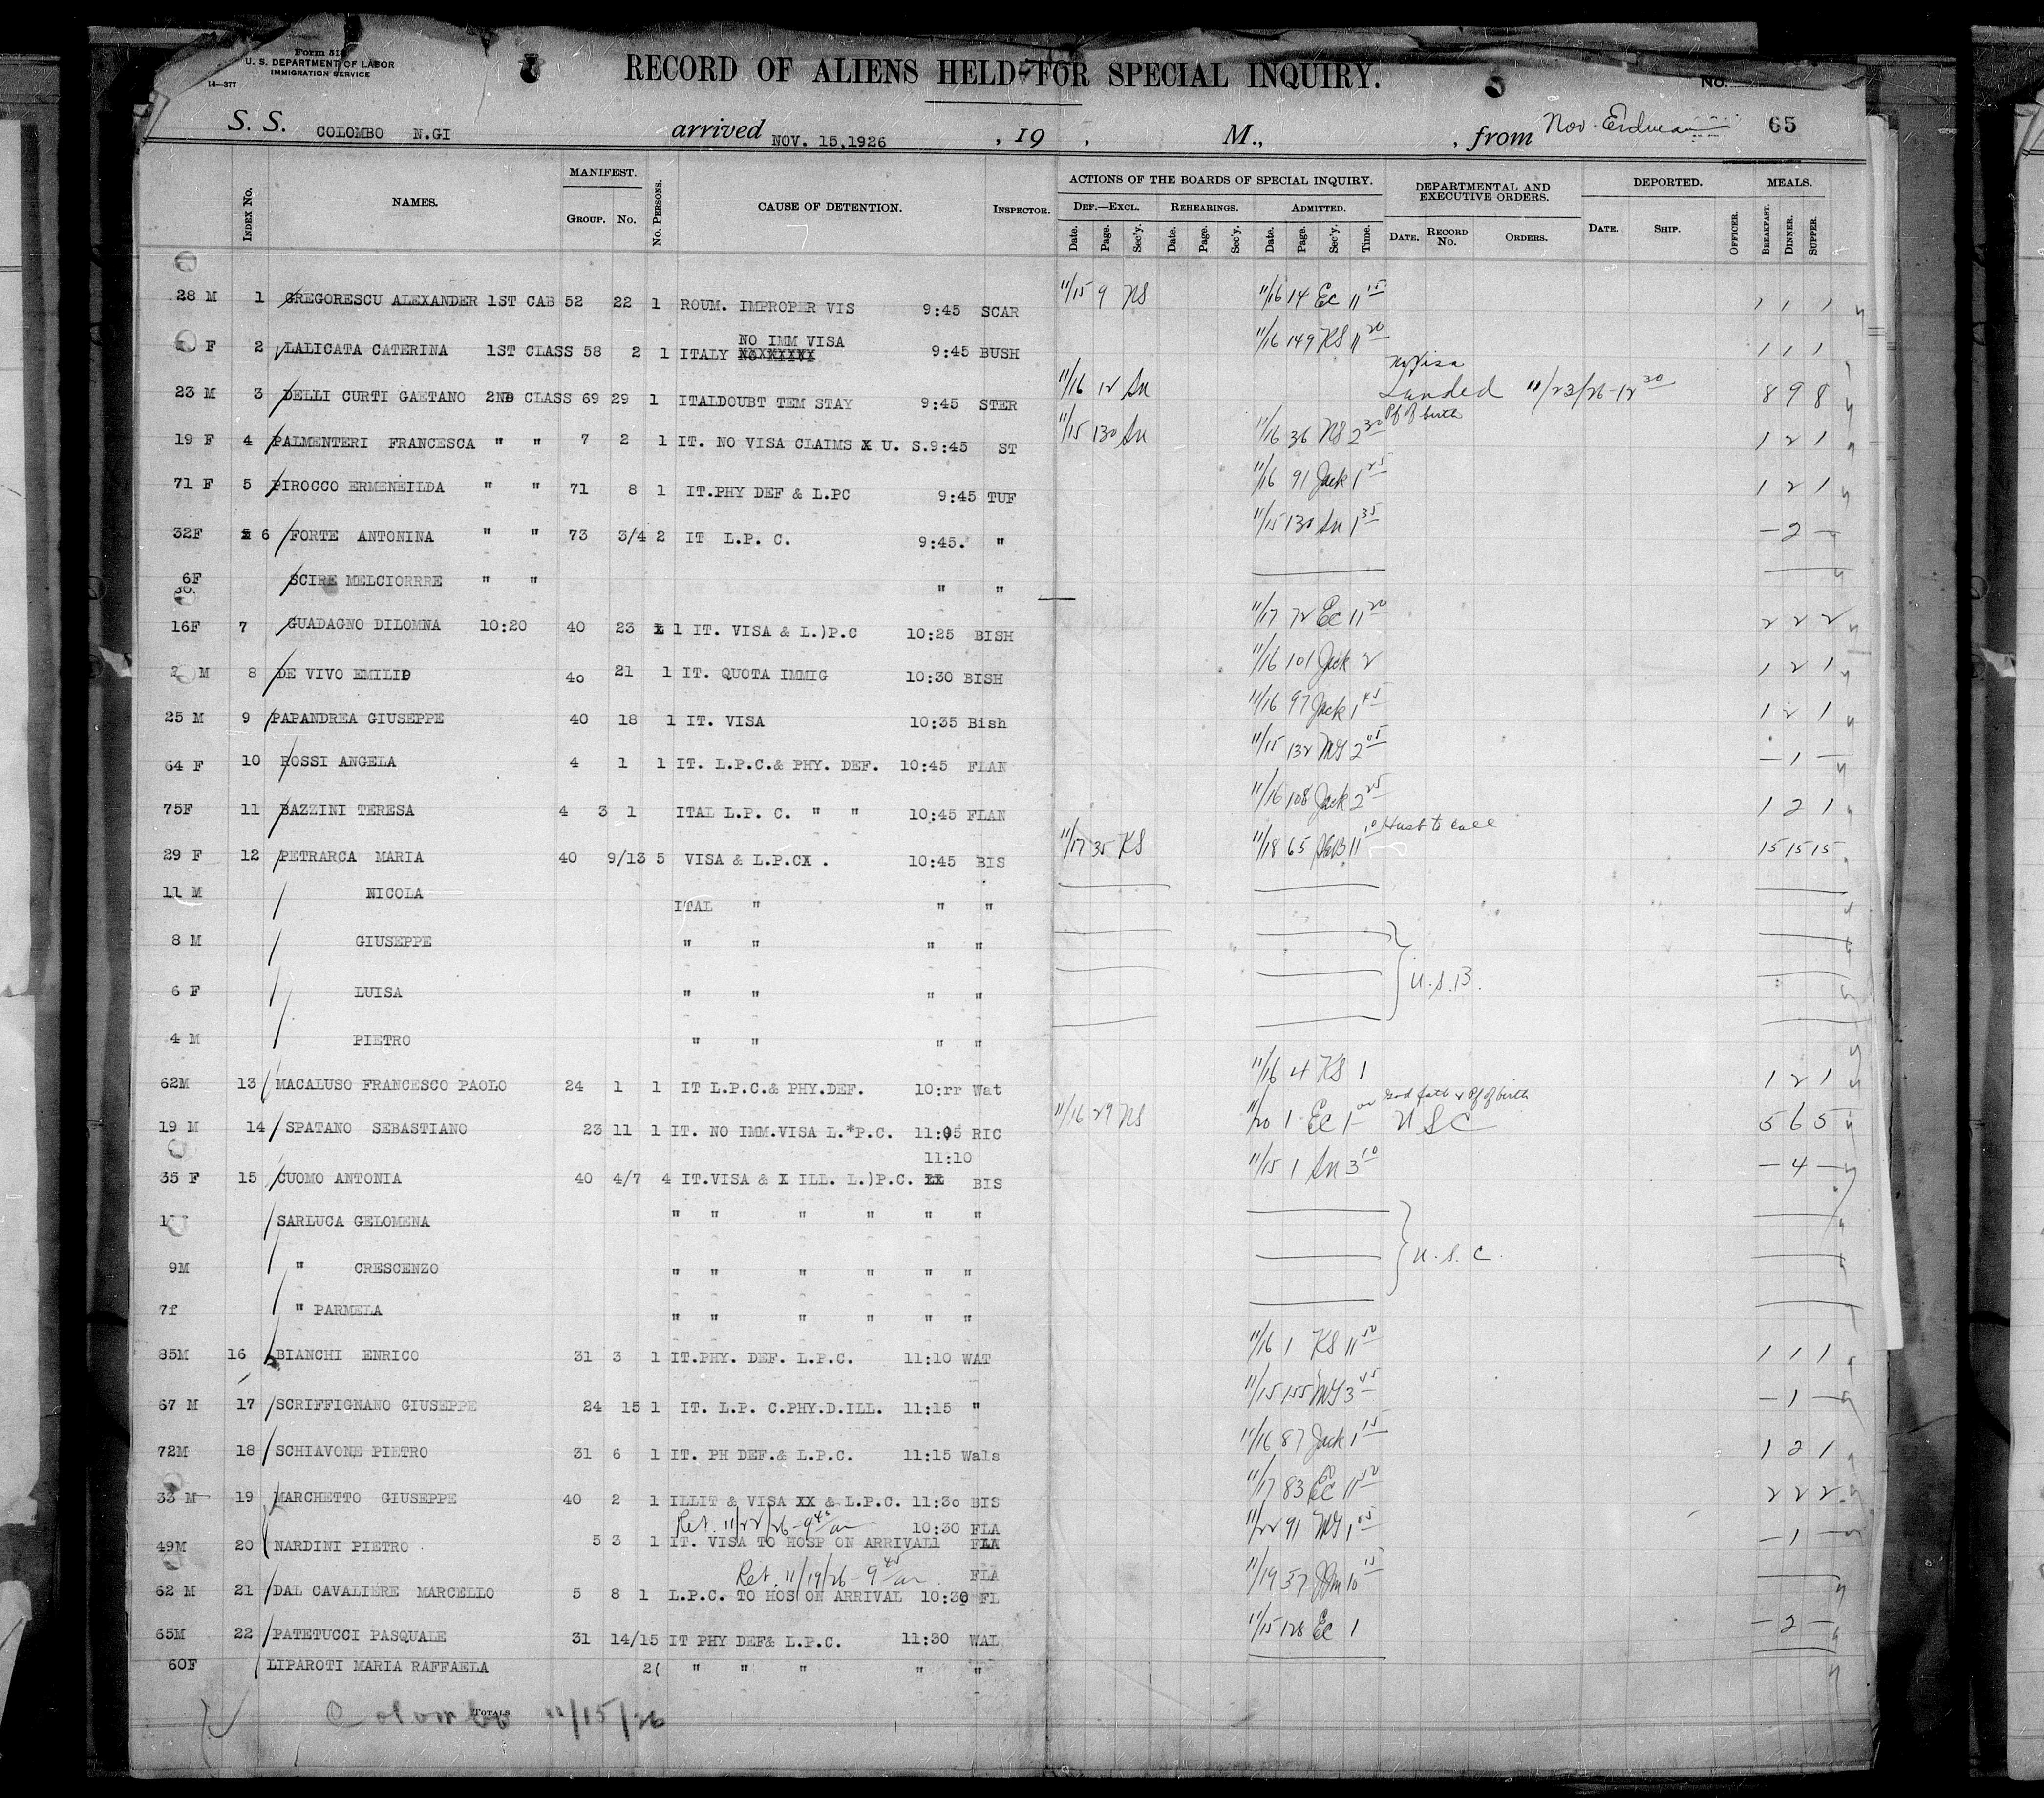 Form 518
U. S. DEPARTMENT OF LABOR
IMMIGRATION SERVICE
14—377
RECORD OF ALIENS HELD FOR SPECIAL INQUIRY.
No.
S. S. COLOMBO N.GI arrived NOV. 15,1926 , 19 , M., , from Nov. 65
Index No. NAMES. MANIFEST. Group. No. No. Persons. CAUSE OF DETENTION. Inspector. ACTIONS OF THE BOARDS OF SPECIAL INQUIRY. Def.—Excl. Rehearings. Admitted. Date. Page. Sec'y. Date. Page. Sec'y. Date. Page. Sec'y. Time. DEPARTMENTAL AND EXECUTIVE ORDERS. Date. Record No. Orders. DEPORTED. Date. Ship. Officer. MEALS. Breakfast. Dinner. Supper.
28 M 1 GREGORESCU ALEXANDER 1ST CAB 52 22 1 ROUM. IMPROPER VIS 9:45 SCAR 11/15 9 NS 11/16 14 EC 11 15 1 1 1
NO IMM VISA
F 2 LALICATA CATERINA 1ST CLASS 58 2 1 ITALY XXXXXXXX 9:45 BUSH 11/16 149 KS 11 20 1 1 1
No Visa
23 M 3 DELLI CURTI GAETANO 2ND CLASS 69 29 1 ITALDOUBT TEM STAY 9:45 STER 11/16 12 Sn Landed 11/23/26-12 30 8 9 8
Pf of birth
19 F 4 PALMENTERI FRANCESCA " " 7 2 1 IT. NO VISA CLAIMS X U. S.9:45 ST 11/15 130 Sn 11/16 36 NS 2 30 1 2 1
71 F 5 PIROCCO ERMENEILDA " " 71 8 1 IT.PHY DEF & L.PC 9:45 TUF 11/16 91 Jack 1 25 1 2 1
32F 6 FORTE ANTONINA " " 73 3/4 2 IT L.P. C. 9:45. " 11/15 130 Sn 1 35 — 2 —
6F SCIRE MELCIORRRE " " " "
16F 7 GUADAGNO DILOMNA 10:20 40 23 1 IT. VISA & L.)P.C 10:25 BISH 11/17 72 EC 11 20 2 2 2
M 8 DE VIVO EMILIO 40 21 1 IT. QUOTA IMMIG 10:30 BISH 11/16 101 Jack 2 1 2 1
25 M 9 PAPANDREA GIUSEPPE 40 18 1 IT. VISA 10:35 Bish 11/16 97 Jack 1 45 1 2 1
64 F 10 ROSSI ANGELA 4 1 1 IT. L.P.C.& PHY. DEF. 10:45 FLAN 11/15 132 MG 2 05 — 1 —
75F 11 BAZZINI TERESA 4 3 1 ITAL L.P. C. " " 10:45 FLAN 11/16 108 Jack 2 25 1 2 1
Husb to call
29 F 12 PETRARCA MARIA 40 9/13 5 VISA & L.P.CX . 10:45 BIS 11/17 35 KS 11/18 65 11 10 15 15 15
11 M NICOLA ITAL " " "
8 M GIUSEPPE " " " "
6 F LUISA " " " " U.S.B.
4 M PIETRO " " " "
62M 13 MACALUSO FRANCESCO PAOLO 24 1 1 IT L.P.C.& PHY.DEF. 10:rr Wat 11/16 4 KS 1 1 2 1
& Pf of birth
19 M 14 SPATANO SEBASTIANO 23 11 1 IT. NO IMM.VISA L.*P.C. 11:05 RIC 11/16 29 NS 11/20 1 EC 1 USC 5 6 5
11:10
35 F 15 CUOMO ANTONIA 40 4/7 4 IT.VISA & X ILL. L.)P.C. XX BIS 11/15 1 Sn 3 10 — 4 —
SARLUCA GELOMENA " " " " " "
9M " CRESCENZO " " " " " " U.S.C.
7f " PARMELA " " " " " "
85M 16 BIANCHI ENRICO 31 3 1 IT.PHY. DEF. L.P.C. 11:10 WAT 11/16 1 KS 11 50 1 1 1
67 M 17 SCRIFFIGNANO GIUSEPPE 24 15 1 IT. L.P. C.PHY.D.ILL. 11:15 " 11/15 155 MG 3 45 — 1 —
72M 18 SCHIAVONE PIETRO 31 6 1 IT. PH DEF.& L.P.C. 11:15 Wals 11/16 87 Jack 1 15 1 2 1
33 M 19 MARCHETTO GIUSEPPE 40 2 1 ILLIT & VISA XX & L.P.C. 11:30 BIS 11/17 83 EC 11 50 2 2 2
Ret. 11/22/26 - 9 45 am 10:30 FLA
49M 20 NARDINI PIETRO 5 3 1 IT. VISA TO HOSP ON ARRIVAL1 FLA 11/22 91 MG 1 05 — 1 —
Ret. 11/19/26 - 9 45 am FLA
62 M 21 DAL CAVALIERE MARCELLO 5 8 1 L.P.C. TO HOS ON ARRIVAL 10:30 FL 11/19 57 10 15
65M 22 PATETUCCI PASQUALE 31 14/15 IT PHY DEF& L.P.C. 11:30 WAL 11/15 128 EC 1 — 2 —
60F LIPAROTI MARIA RAFFAELA 2( " " " " "
Totals.
Colombo 11/15/26